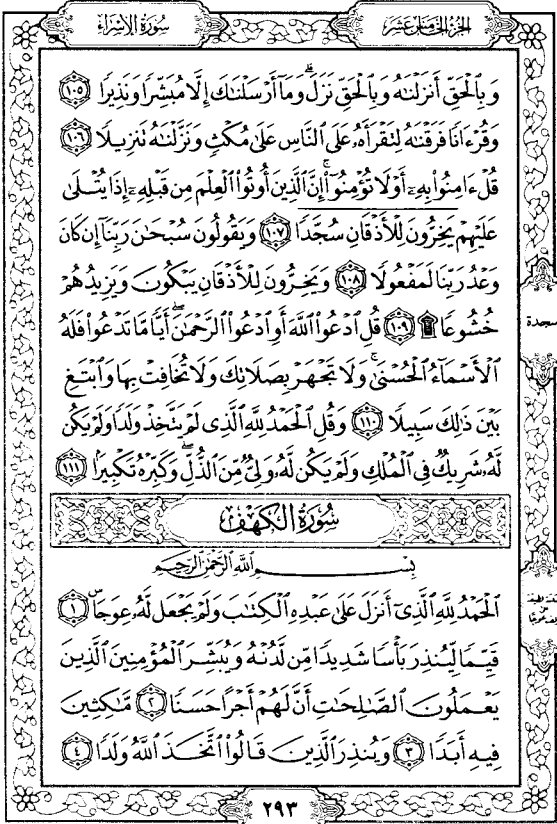 سورة الإسراء
الجزء الخامس عشر
وَبِٱلْحَقِّ أَنزَلْنَٰهُ وَبِٱلْحَقِّ نَزَلَ ۗ وَمَآ أَرْسَلْنَٰكَ إِلَّا مُبَشِّرًا وَنَذِيرًا ١٠٥
وَقُرْءَانًا فَرَقْنَٰهُ لِتَقْرَأَهُۥ عَلَى ٱلنَّاسِ عَلَىٰ مُكْثٍ وَنَزَّلْنَٰهُ تَنزِيلًا ١٠٦
قُلْ ءَامِنُوا۟ بِهِۦٓ أَوْ لَا تُؤْمِنُوٓا۟ ۚ إِنَّ ٱلَّذِينَ أُوتُوا۟ ٱلْعِلْمَ مِن قَبْلِهِۦٓ إِذَا يُتْلَىٰ
عَلَيْهِمْ يَخِرُّونَ لِلْأَذْقَانِ سُجَّدًا ١٠٧ وَيَقُولُونَ سُبْحَٰنَ رَبِّنَآ إِن كَانَ
وَعْدُ رَبِّنَا لَمَفْعُولًا ١٠٨ وَيَخِرُّونَ لِلْأَذْقَانِ يَبْكُونَ وَيَزِيدُهُمْ
خُشُوعًا ۩ ١٠٩ قُلِ ٱدْعُوا۟ ٱللَّهَ أَوِ ٱدْعُوا۟ ٱلرَّحْمَٰنَ ۖ أَيًّا مَّا تَدْعُوا۟ فَلَهُ
ٱلْأَسْمَآءُ ٱلْحُسْنَىٰ ۚ وَلَا تَجْهَرْ بِصَلَاتِكَ وَلَا تُخَافِتْ بِهَا وَٱبْتَغِ
بَيْنَ ذَٰلِكَ سَبِيلًا ١١٠ وَقُلِ ٱلْحَمْدُ لِلَّهِ ٱلَّذِى لَمْ يَتَّخِذْ وَلَدًا وَلَمْ يَكُن
لَّهُۥ شَرِيكٌ فِى ٱلْمُلْكِ وَلَمْ يَكُن لَّهُۥ وَلِىٌّ مِّنَ ٱلذُّلِّ ۖ وَكَبِّرْهُ تَكْبِيرًا ١١١
سجدة
سُورَةُ الْكَهْفِ
بِسْمِ ٱللَّهِ ٱلرَّحْمَٰنِ ٱلرَّحِيمِ
ٱلْحَمْدُ لِلَّهِ ٱلَّذِىٓ أَنزَلَ عَلَىٰ عَبْدِهِ ٱلْكِتَٰبَ وَلَمْ يَجْعَل لَّهُۥ عِوَجَا ۜ ١
قَيِّمًا لِّيُنذِرَ بَأْسًا شَدِيدًا مِّن لَّدُنْهُ وَيُبَشِّرَ ٱلْمُؤْمِنِينَ ٱلَّذِينَ
يَعْمَلُونَ ٱلصَّٰلِحَٰتِ أَنَّ لَهُمْ أَجْرًا حَسَنًا ٢ مَّٰكِثِينَ
فِيهِ أَبَدًا ٣ وَيُنذِرَ ٱلَّذِينَ قَالُوا۟ ٱتَّخَذَ ٱللَّهُ وَلَدًا ٤
٢٩٣